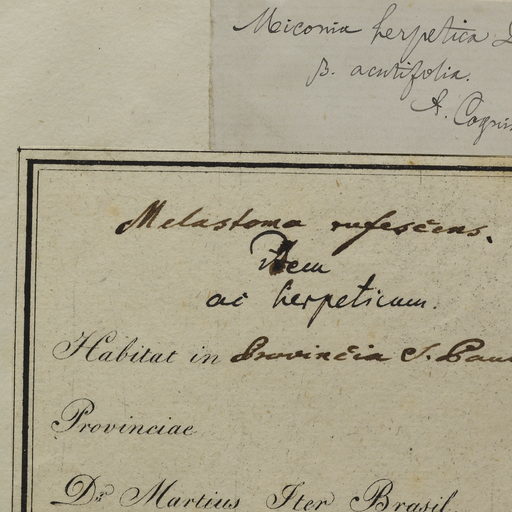 Miconia herpetica
β. acutifolia.
A. Cogni
Melastoma rufescens.
item
ac herpeticum.
Habitat in Provincia S. Pau
Provinciae
Dr. Martius Iter Brasil.